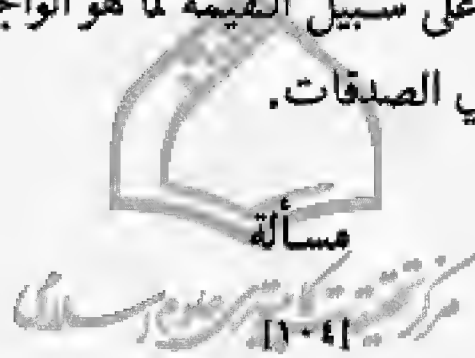 على سبيل القيمة لما هو الواجب
ي الصدقات.
مسألة
[١٠٤]
مركز تحقيقات كامپيوتری علوم اسلامی